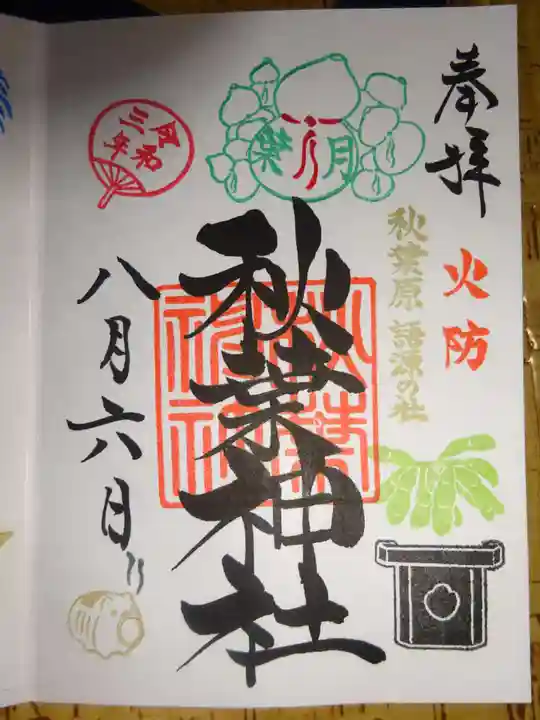 奉拝
火防
秋葉原 語源の社
八月祭
秋葉神社
令和
三年
八月六日